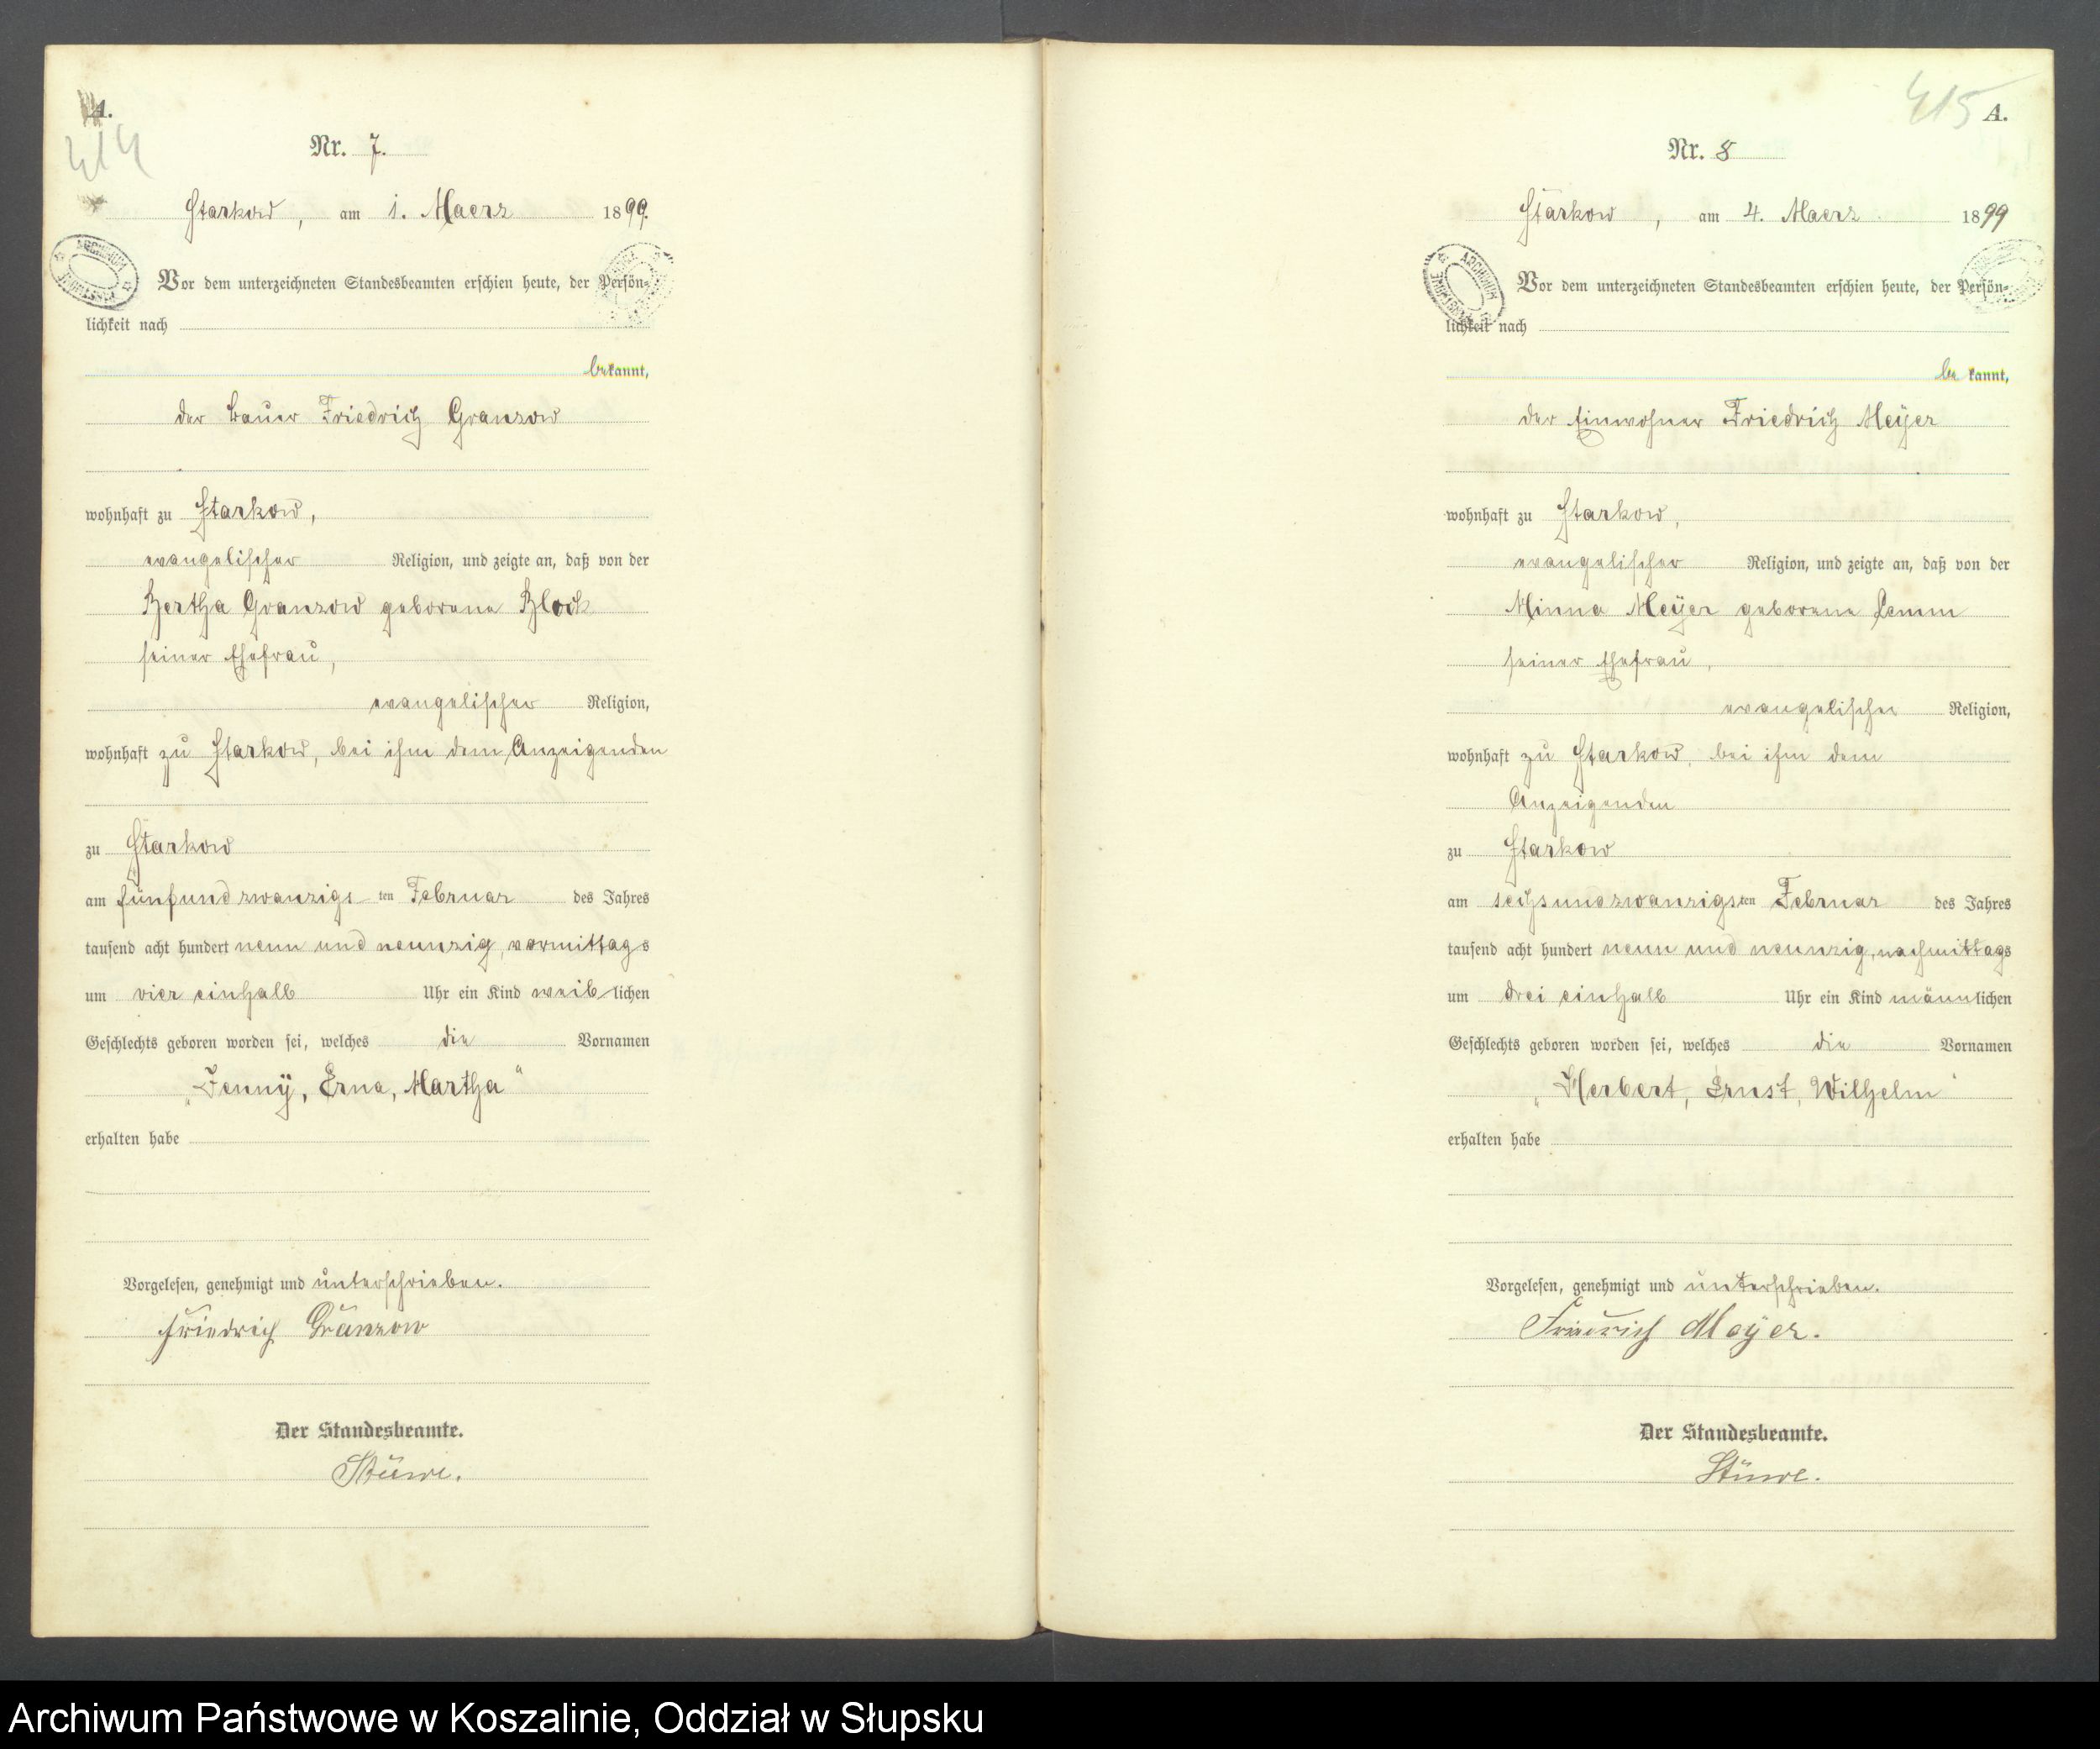 A.
414
Nr. 7.
Starkow, am 1. Maerz 1899.
Vor dem unterzeichneten Standesbeamten erschien heute, der Persön-
lichkeit nach
bekannt,
der Bauer Friedrich Granzow
wohnhaft zu Starkow,
evangelischer Religion, und zeigte an, daß von der
Bertha Granzow geborene Block
seiner Ehefrau,
evangelischer Religion,
wohnhaft zu Starkow, bei ihm dem Anzeigenden
zu Starkow
am fünfundzwanzigsten Februar des Jahres
tausend acht hundert neun und neunzig, vormittags
um vier einhalb Uhr ein Kind weiblichen
Geschlechts geboren worden sei, welches die Vornamen
„Jenny, Erna, Martha“
erhalten habe
Vorgelesen, genehmigt und unterschrieben.
Friedrich Granzow
Der Standesbeamte.
Stüwe.
415
A.
Nr. 8
Starkow, am 4. Maerz 1899
Vor dem unterzeichneten Standesbeamten erschien heute, der Persön-
lichkeit nach
bekannt,
der Einwohner Friedrich Meyer
wohnhaft zu Starkow,
evangelischer Religion, und zeigte an, daß von der
Minna Meyer geborene Lemm
seiner Ehefrau,
evangelischer Religion,
wohnhaft zu Starkow, bei ihm dem
Anzeigenden
zu Starkow
am sechsundzwanzigsten Februar des Jahres
tausend acht hundert neun und neunzig, nachmittags
um drei einhalb Uhr ein Kind männlichen
Geschlechts geboren worden sei, welches die Vornamen
„Herbert, Ernst, Wilhelm“
erhalten habe
Vorgelesen, genehmigt und unterschrieben.
Friedrich Meyer.
Der Standesbeamte.
Stüwe.
Archiwum Państwowe w Koszalinie, Oddział w Słupsku